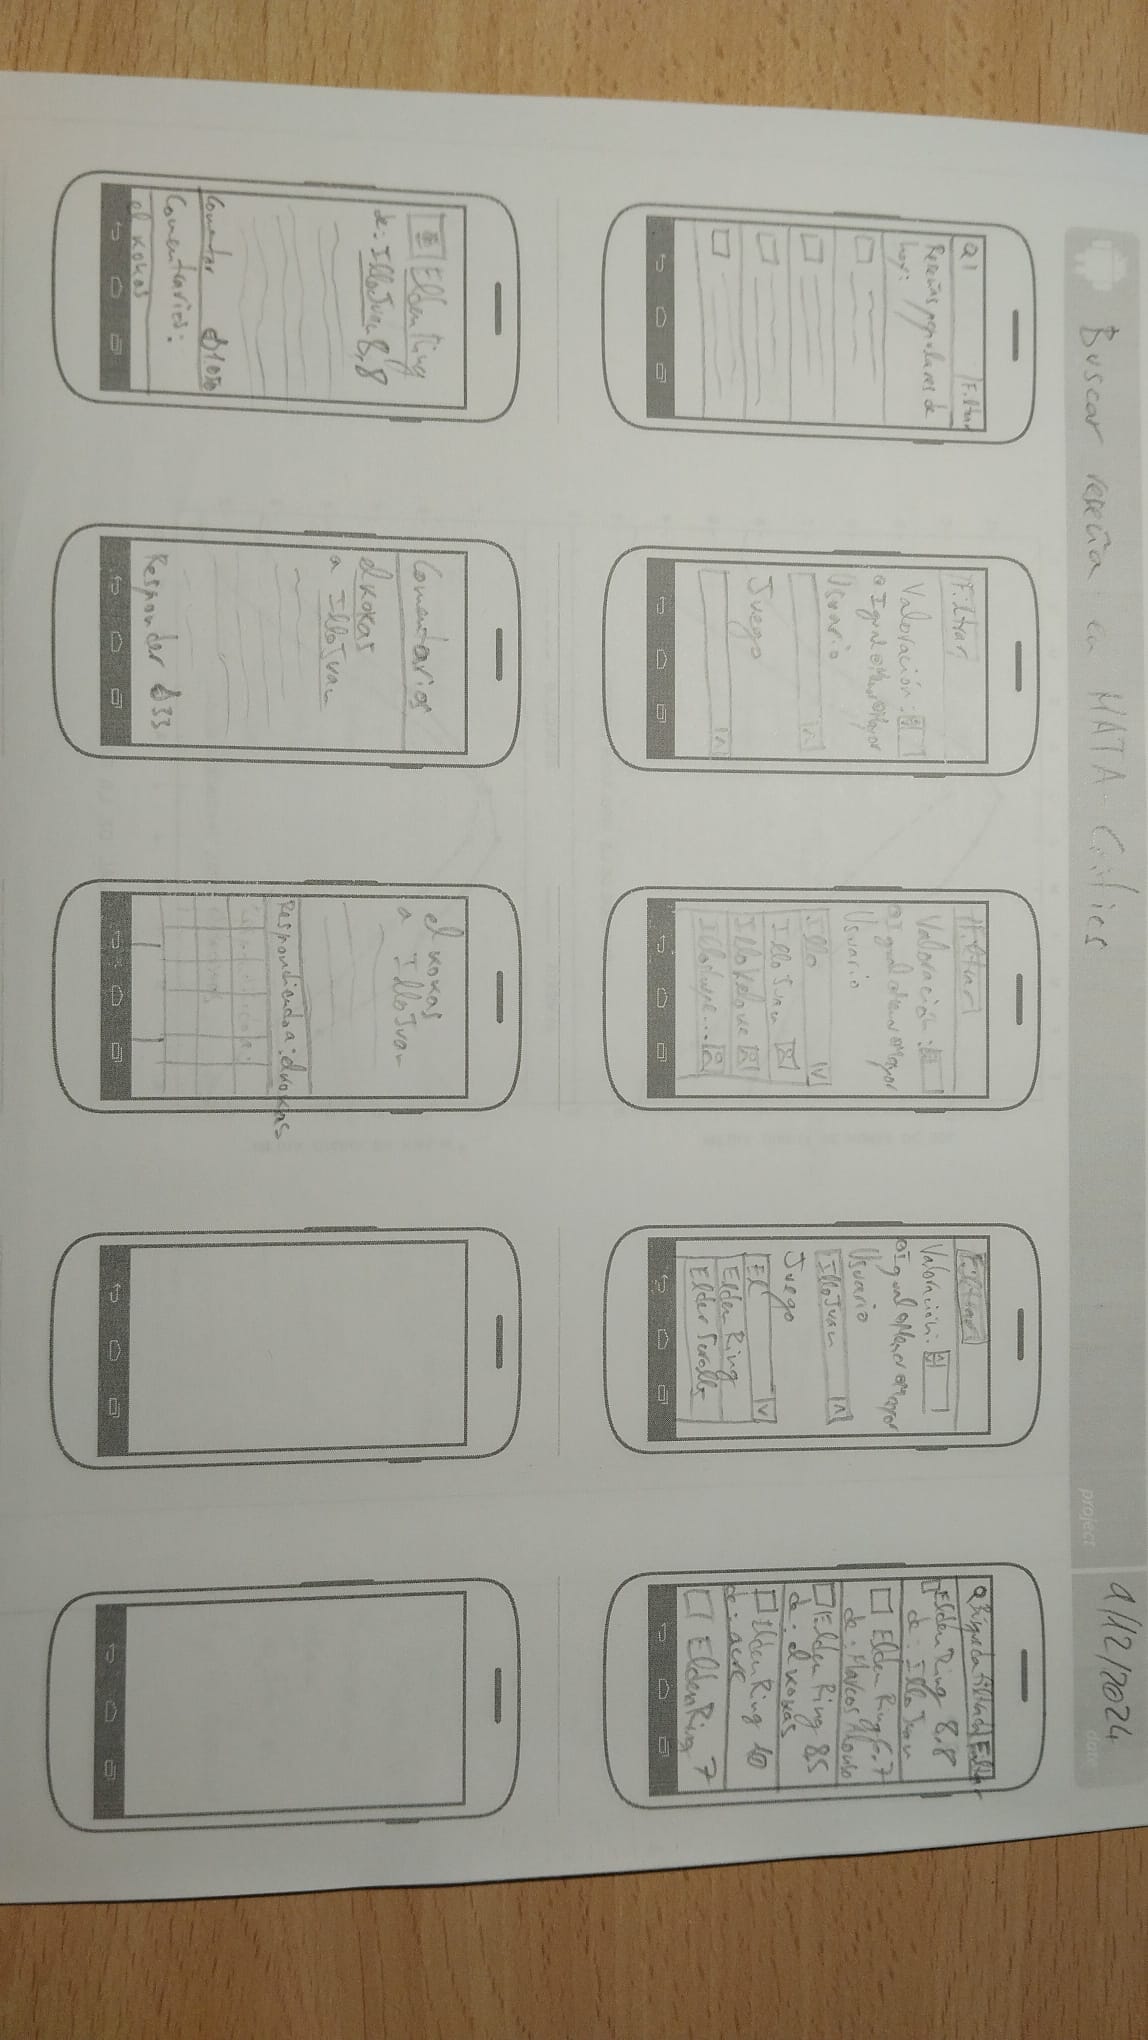 Buscar reseña en MATA-Critics
project
9/12/2024
date
Filtrar
Reseñas populares de
hoy:
Filtrar
Valoración:
Igual Menor Mayor
Usuario
Juego
Filtrar
Valoración:
Igual Menor Mayor
Usuario
Illo
IlloJuan
Filtrar
Valoración:
Igual Menor Mayor
Usuario
IlloJuan
Juego
El
Elden Ring
Elder Scrolls
Búsqueda filtrada Filtrar
Elden Ring 8,8
de: IlloJuan
Elden Ring 6.7
de: Marcos Alonso
Elden Ring 8,5
de: el xokas
Elden Ring 10
de:
Elden Ring 7
Elden Ring
de: IlloJuan 8,8
Comentar
Comentarios:
el xokas
Comentarios
el xokas
a IlloJuan
Responder 33
el xokas
a IlloJuan
Respondiendo a: el xokas